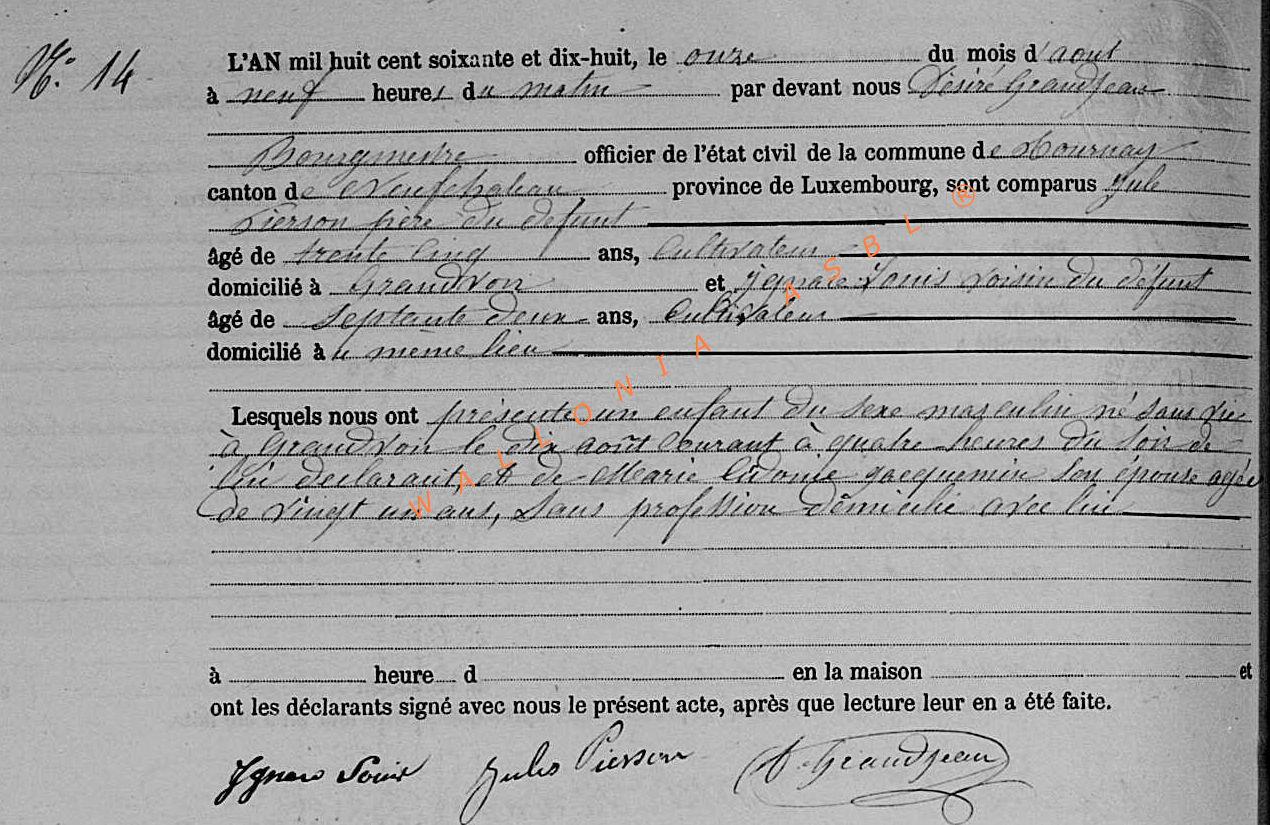 N° 14
L'AN mil huit cent soixante et dix-huit, le onze du mois d'aout
à neuf heures du matin par devant nous Désiré Grandjean
Bourgmestre officier de l'état civil de la commune de Tournay
canton de Neufchateau province de Luxembourg, sont comparus Jule
Pierson père du defunt
âgé de trente cinq ans, Cultivateur
domicilié à Grandvoir et Ignace Louis voisin du défunt
âgé de Septante deux ans, Cultivateur
domicilié à u même lieu
Lesquels nous ont présenté un enfant du sexe masculin né sans vie
à Grandvoir le dix août courant à quatre heures du soir de
lui declarant, et de Marie Sidonie Jacquemin son épouse agée
de vingt un ans, Sans profession domicilié avec lui
à heure d en la maison et
ont les déclarants signé avec nous le présent acte, après que lecture leur en a été faite.
Ignace Louis Jules Pierson D. Grandjean
WALLONIA ASBL ®